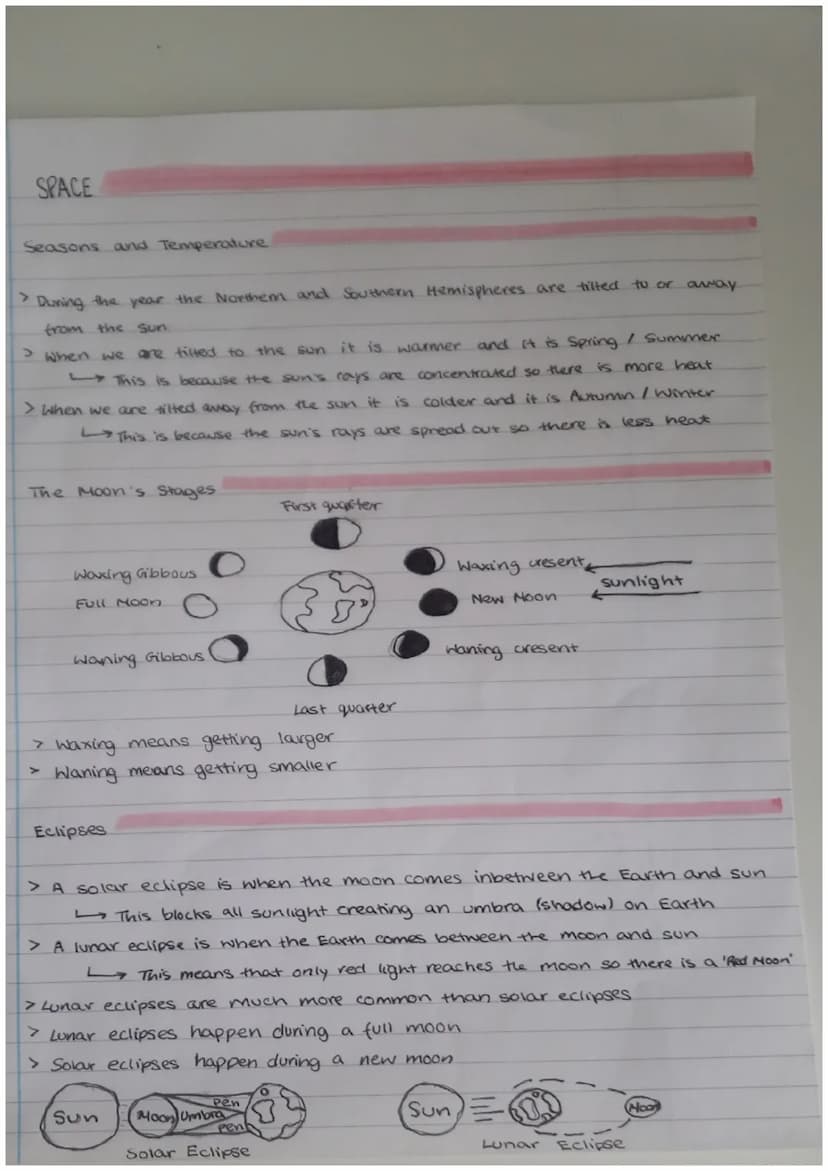 SPACE
Seasons and Temperature
> During the year the Northern and Southern Hemispheres are tilted to or away
from the sun
> When we are tilted to the sun it is warmer and it is Spring / Summer
↳ This is because the sun's rays are concentrated so there is more heat
> When we are tilted away from the sun it is colder and it is Autumn / Winter
↳ This is because the sun's rays are spread out so there is less heat
The Moon's Stages
First quarter
Waxing Gibbous
Waxing cresent
sunlight
Full Moon
New Moon
Waning Gibbous
Waning cresent
Last quarter
> Waxing means getting larger
> Waning means getting smaller
Eclipses
> A solar eclipse is when the moon comes inbetween the Earth and sun
↳ This blocks all sunlight creating an umbra (shadow) on Earth
> A lunar eclipse is when the Earth comes between the moon and sun
↳ This means that only red light reaches the moon so there is a 'Red Moon'
> Lunar eclipses are much more common than solar eclipses
> Lunar eclipses happen during a full moon
> Solar eclipses happen during a new moon
Sun Moon Pen Umbra Pen
Solar Eclipse
Sun Moon
Lunar Eclipse